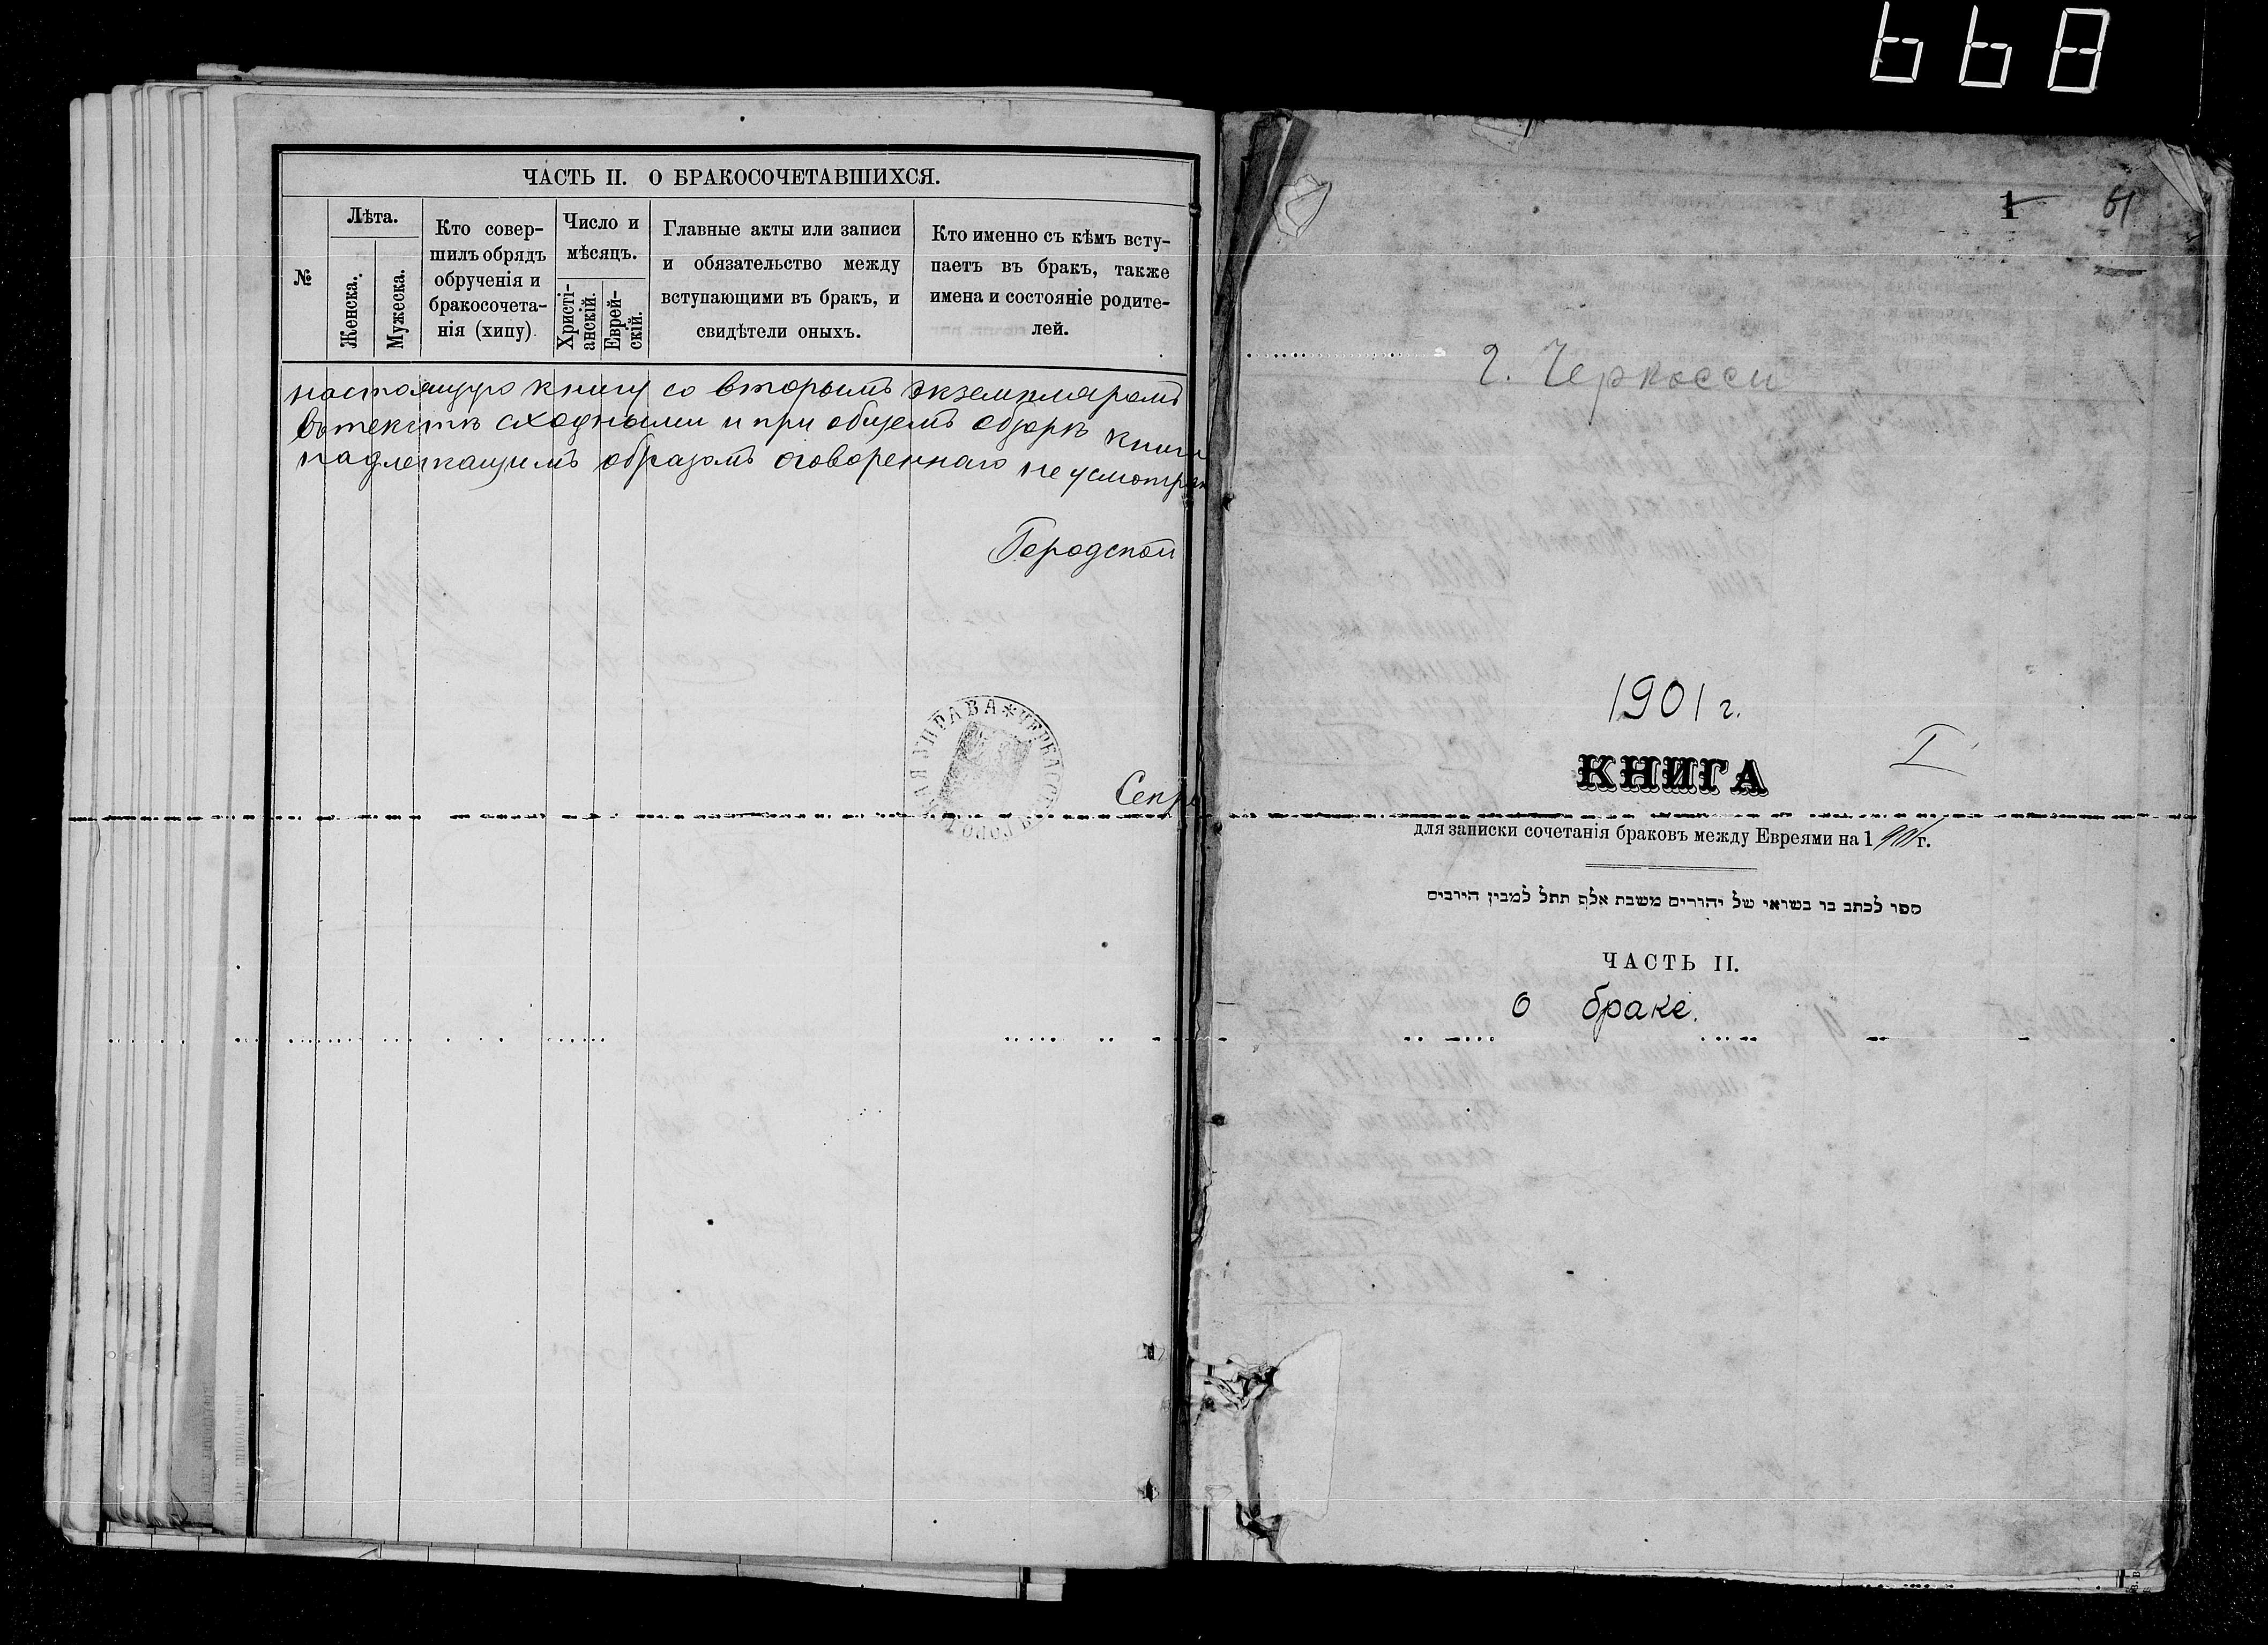 668
ЧАСТЬ II. О БРАКОСОЧЕТАВШИХСЯ.
№
Лѣта.
Женска.
Мужеска.
Кто совер-
шилъ обрядъ
обрученія и
бракосочета-
нія (хипу)
Число и
мѣсяцъ.
Христі-
анскій.
Еврей-
скій.
Главные акты или записи
и обязательство между
вступающими въ бракъ, и
свидѣтели оныхъ.
Кто именно съ кѣмъ всту-
паетъ въ бракъ, также
имена и состояніе родите-
лей.
настоящую книгу со вторымъ экземпляромъ
въ текстѣ сходными и при общемъ обзорѣ книги
надлежащимъ образомъ оговореннаго не усмотрѣн
Городской
УПРАВА * ЧЕРКАССКАЯ ГОРО
Секре
1 61
г. Черкассы
1901 г.
I
КНИГА
для записки сочетанія браковъ между Евреями на 1901 г.
ספר לכתב בו בשואי של יהודים משבת אלף תתל למבין הירבים
ЧАСТЬ II.
О браке.